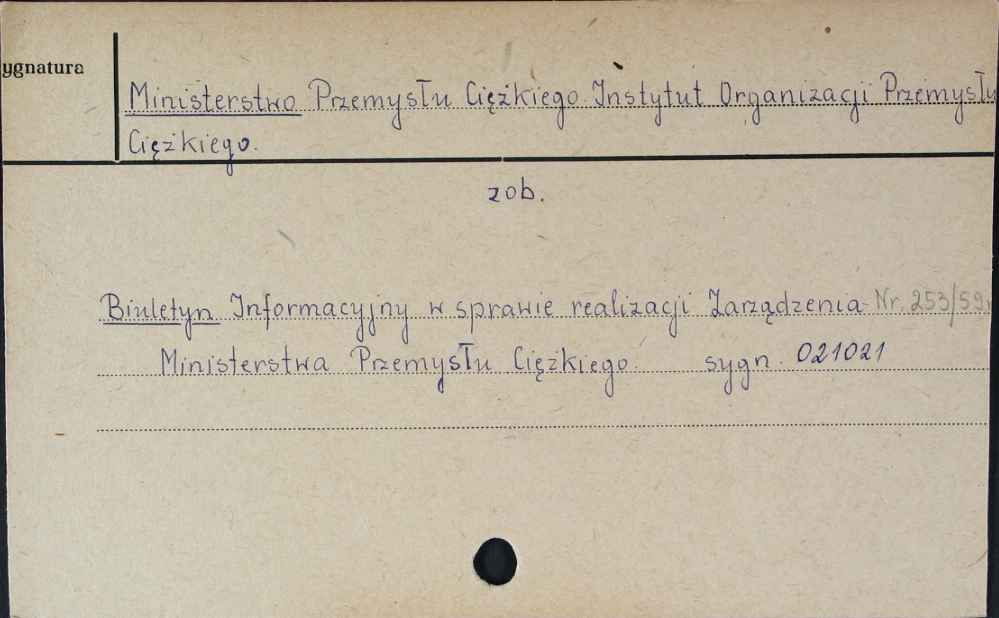 ygnatura
Ministerstwo Przemysłu Ciężkiego. Instytut Organizacji Przemysłu
Ciężkiego.
zob.
Biuletyn Informacyjny w sprawie realizacji Zarządzenia Nr. 253/59
Ministerstwa Przemysłu Ciężkiego. sygn. 021021